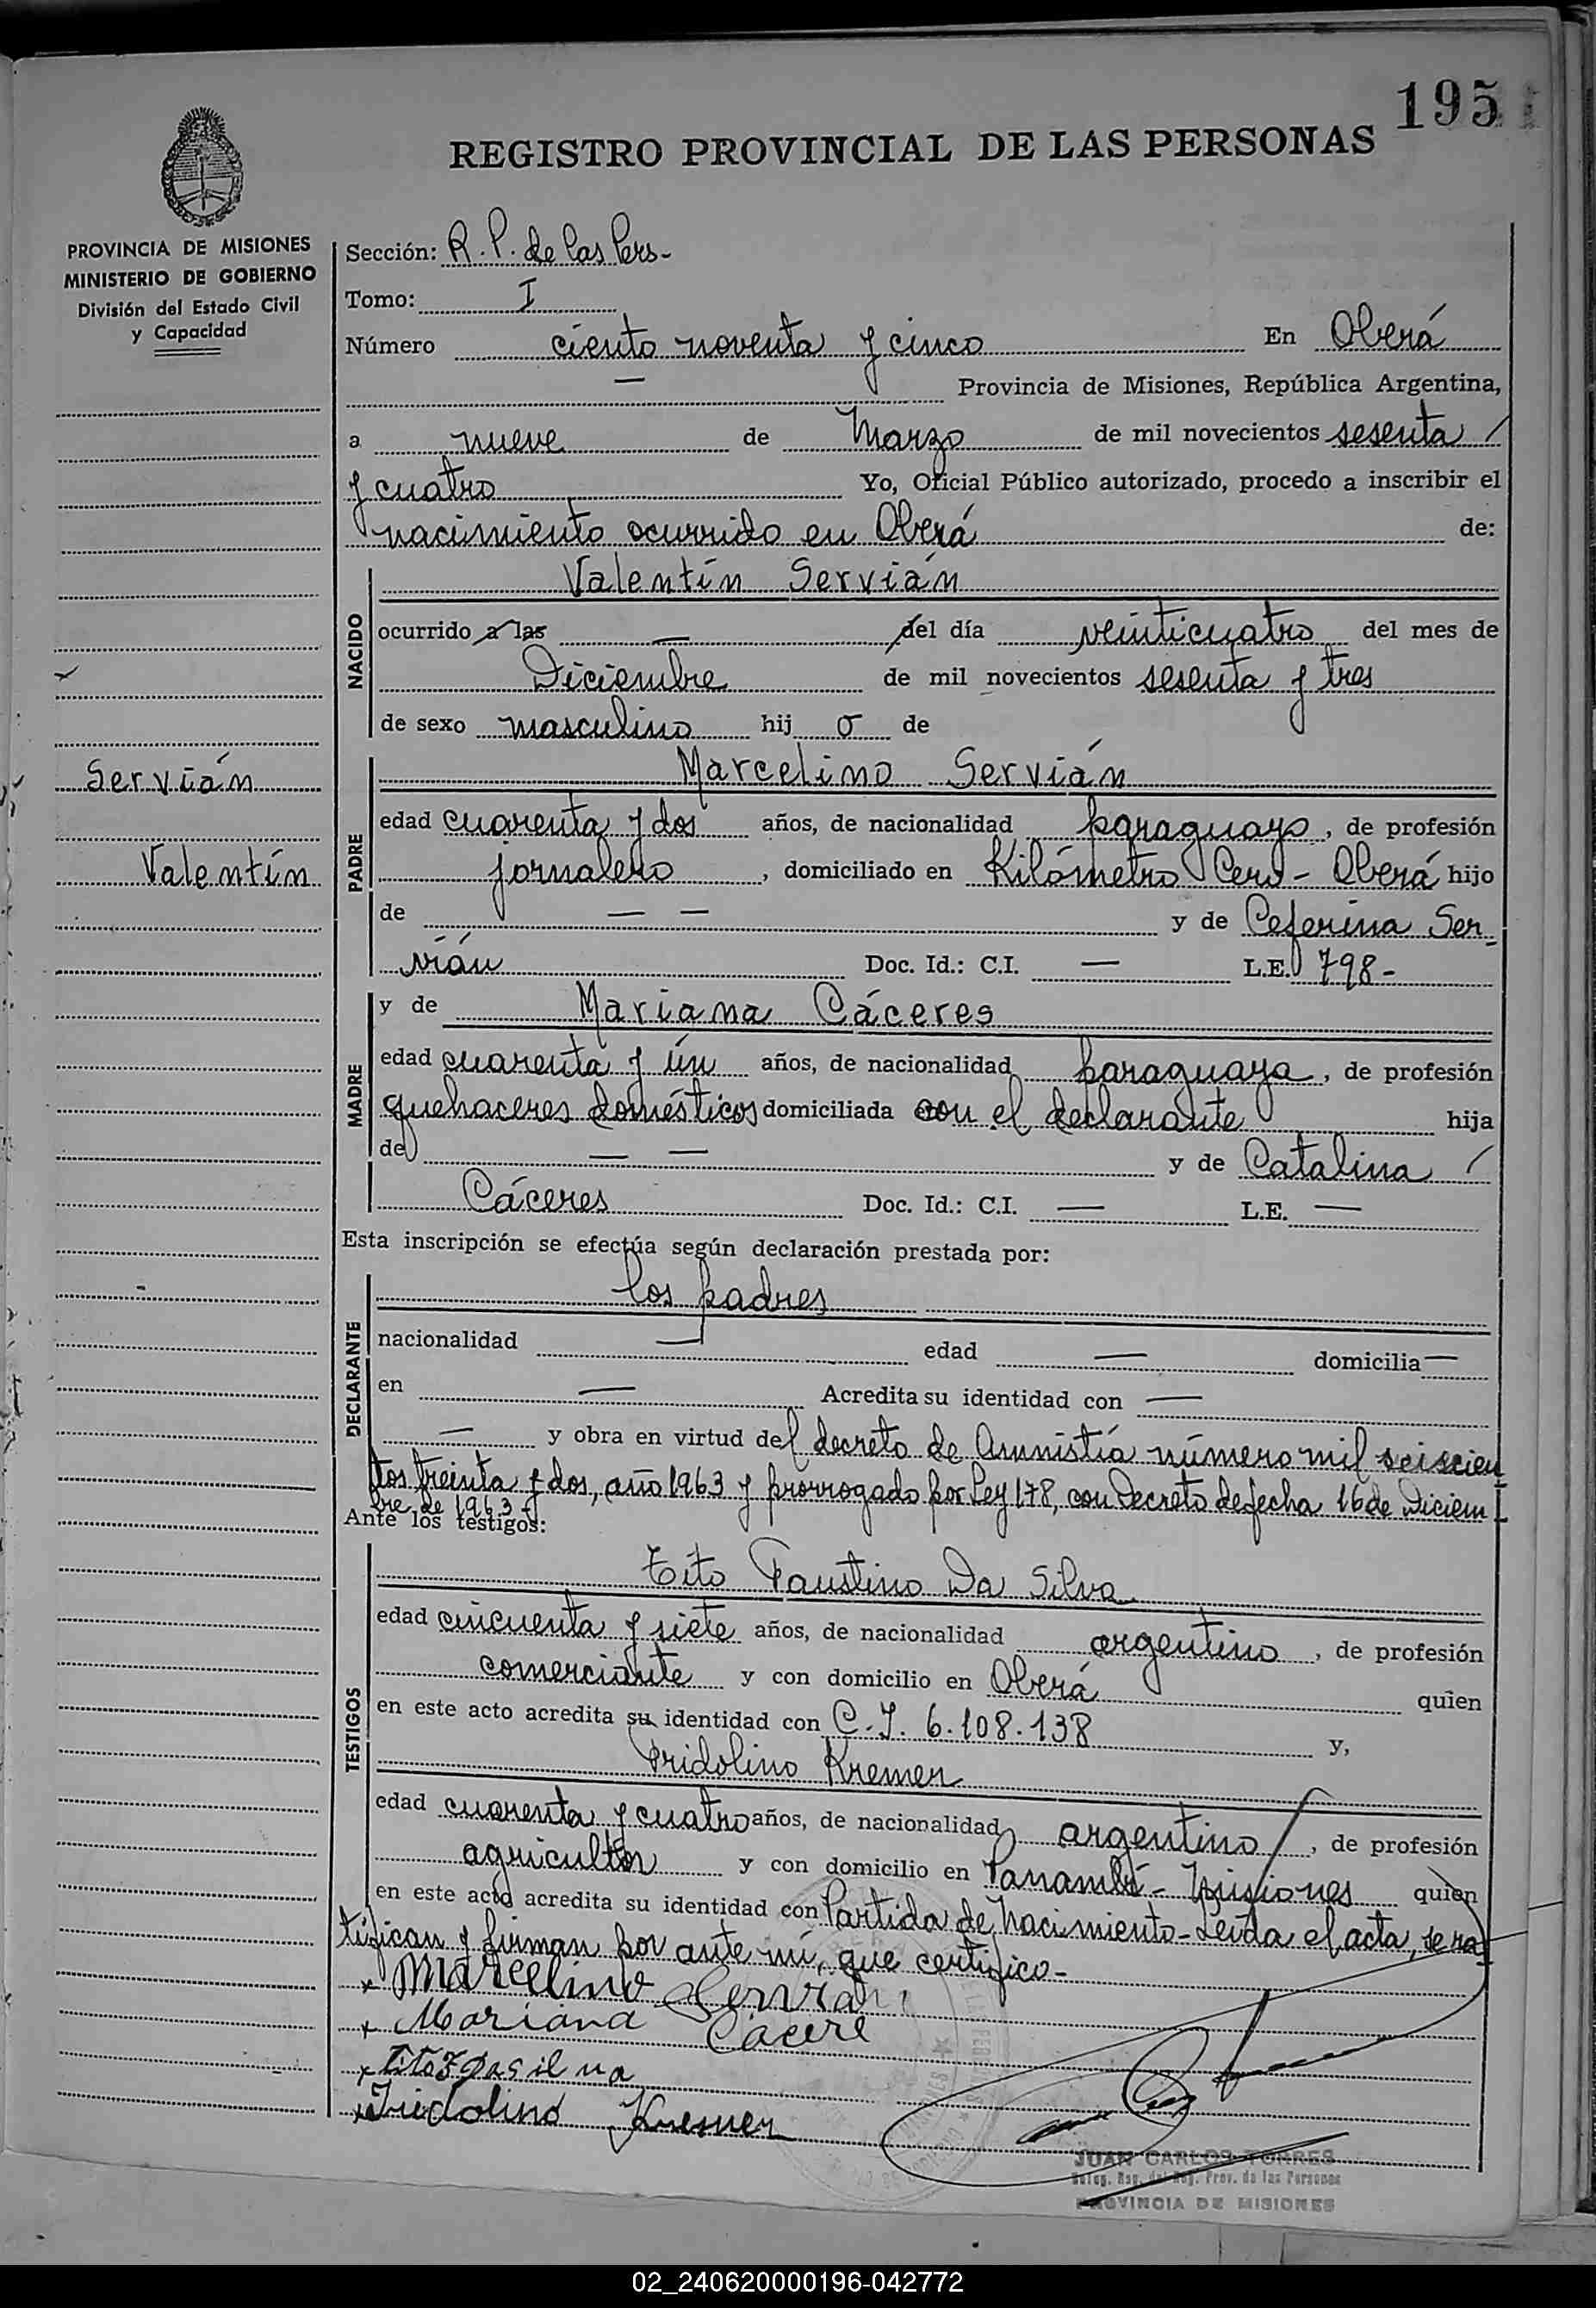 195
REGISTRO PROVINCIAL DE LAS PERSONAS
PROVINCIA DE MISIONES
MINISTERIO DE GOBIERNO
División del Estado Civil
y Capacidad
Servián
Valentín
Sección: R. P. de las Pers-
Tomo: I
Número ciento noventa y cinco En Oberá
— Provincia de Misiones, República Argentina,
a nueve de Marzo de mil novecientos sesenta /
y cuatro Yo, Oficial Público autorizado, procedo a inscribir el
nacimiento ocurrido en Oberá de:
NACIDO
Valentín Servián
ocurrido a las — del día veinticuatro del mes de
Diciembre de mil novecientos sesenta y tres
de sexo masculino hij o de
PADRE
Marcelino Servián
edad cuarenta y dos años, de nacionalidad paraguayo, de profesión
jornalero, domiciliado en Kilómetro Cero - Oberá hijo
de — — y de Ceferina Ser-
vián Doc. Id.: C.I. — L.E. 798-
MADRE
y de Mariana Cáceres
edad cuarenta y ún años, de nacionalidad paraguaya, de profesión
quehaceres domésticos domiciliada con el declarante hija
de — — y de Catalina /
Cáceres Doc. Id.: C.I. — L.E. —
Esta inscripción se efectúa según declaración prestada por:
DECLARANTE
los padres
nacionalidad — edad — domicilia —
en — Acredita su identidad con —
— y obra en virtud del decreto de Amnistía número mil seiscien
tos treinta y dos, año 1963 y prorrogado por Ley 178, con Decreto de fecha 16 de Diciem-
bre de 1963-
Ante los testigos:
TESTIGOS
Tito Faustino Da Silva
edad cincuenta y siete años, de nacionalidad argentino, de profesión
comerciante y con domicilio en Oberá quien
en este acto acredita su identidad con C.I. 6.108.138 y,
Fridolino Kremer
edad cuarenta y cuatro años, de nacionalidad argentino, de profesión
agricultor y con domicilio en Panambí - Misiones quien
en este acto acredita su identidad con Partida de Nacimiento - Leída el acta, se ra-
tifican y firman por ante mí, que certifico-
x Marcelino Servian
x Mariana Cacere
x Tito F Dasilva
x Fridolino Kremer
JUAN CARLOS TORRES
Prov. de las Personas
PROVINCIA DE MISIONES
02_240620000196-042772